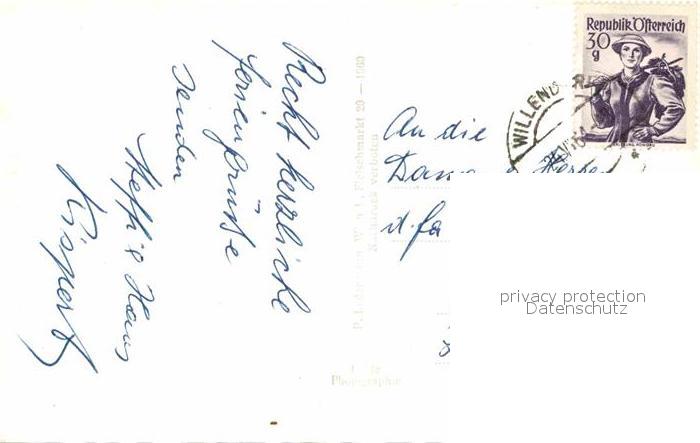 Recht herzliche
Feriengrüße
senden
Steffi & Hans
P. Ledermann, Wien I., Fleischmarkt 20 — 1960
Nachdruck verboten
Photographie
An die
d. Fa
Republik Österreich
30
g
WILLEND
privacy protection
Datenschutz